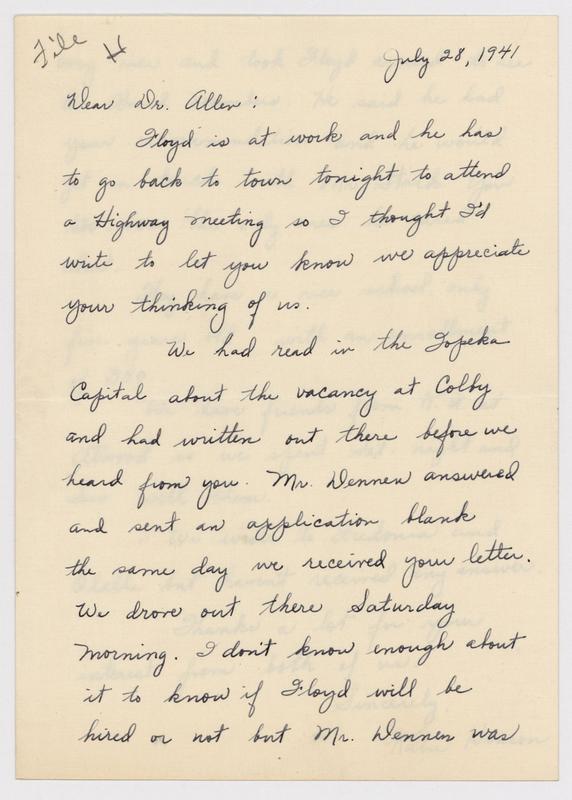 File H
July 28, 1941
Dear Dr. Allen:
Floyd is at work and he has
to go back to town tonight to attend
a Highway meeting so I thought I'd
write to let you know we appreciate
your thinking of us.
We had read in the Topeka
Capital about the vacancy at Colby
and had written out there before we
heard from you. Mr. Dennen answered
and sent an application blank
the same day we received your letter.
We drove out there Saturday
morning. I don't know enough about
it to know if Floyd will be
hired or not but Mr. Dennen was